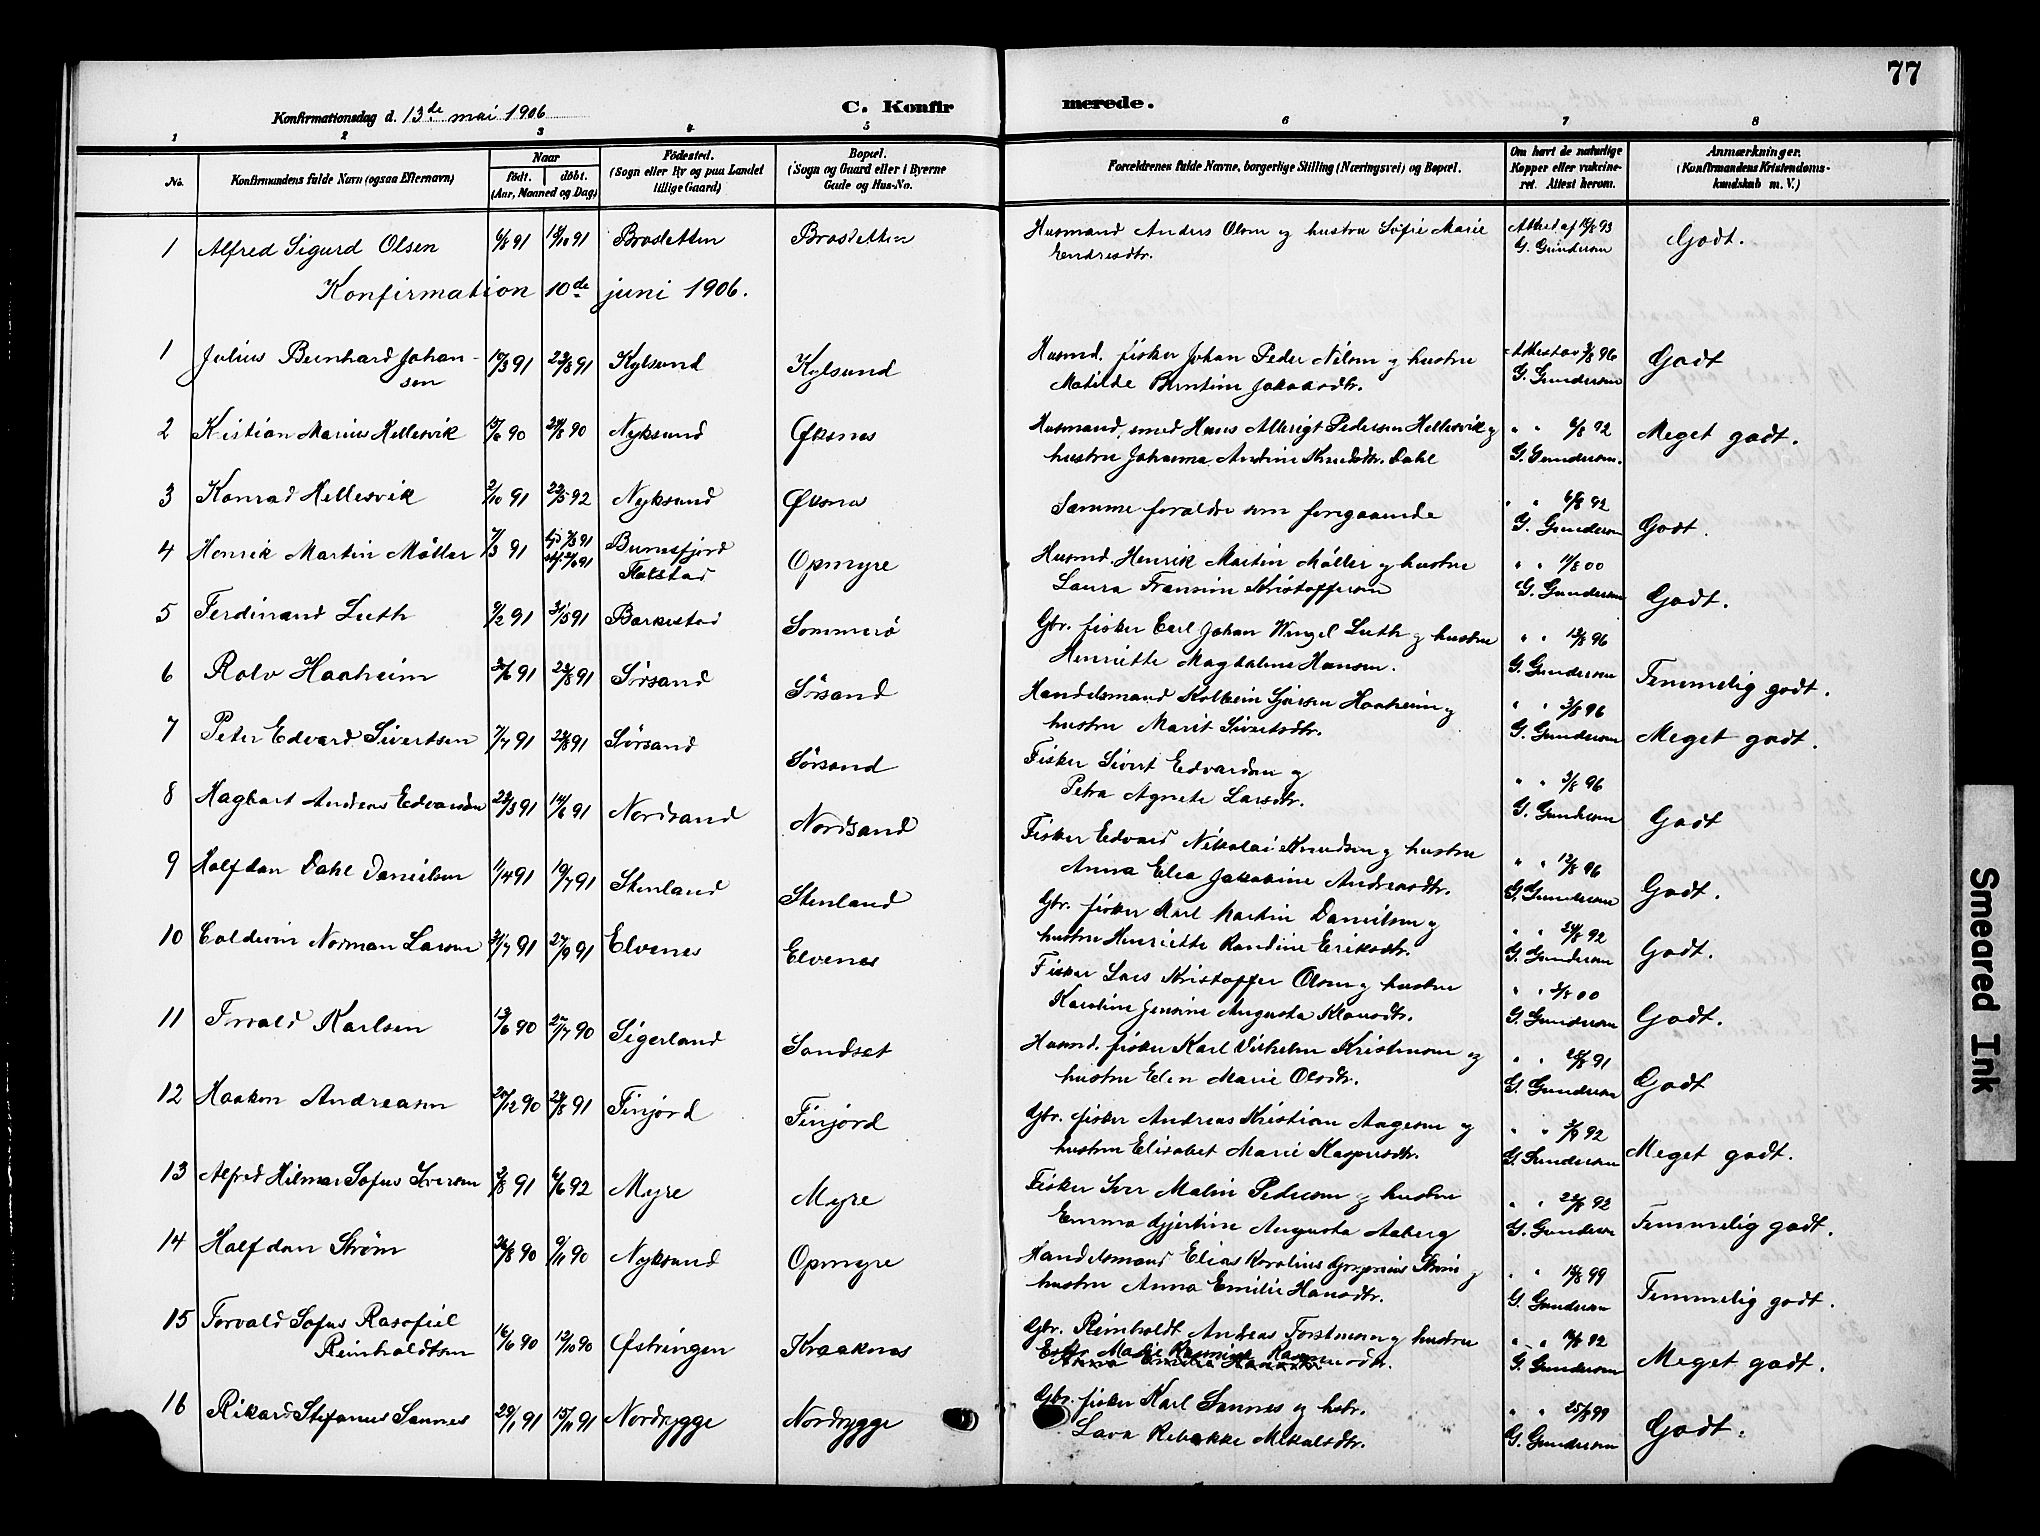 77
Konfirmationsdag d. 13de mai 1906
C. Konfirmerede.
1 2 3 4 5 6 7 8
No.
Konfirmandens fulde Navn (ogsaa Efternavn)
Naar
födt. döbt.
(Aar, Maaned og Dag)
Födested.
(Sogn eller By og paa Landet
tillige Gaard)
Bopæl.
(Sogn og Gaard eller i Byerne
Gade og Hus-No.
Forældrenes fulde Navne, borgerlige Stilling (Næringsvei) og Bopæl.
Om havt de naturlige
Kopper eller vaksine-
ret. Attest herom.
Anmærkninger.
(Konfirmandens Kristendoms-
kundskab m. V.)
1 Alfred Sigurd Olsen 6/8 91 18/10 91 Brosletten Brosletten Husmand Anders Olsen og hustru Sofie Marie
Endresdtr. G. Gundersen Godt.
Konfirmation 10de juni 1906.
1 Julius Bernhard Johan-
sen 10/3 91 23/8 91 Kylsund Kylsund Husmd. fisker Johan Peder Nilsen og hustru
Matilde Berntine Jakobsdtr. G. Gundersen Godt
2 Kristian Marius Hellesvik 90 24/8 90 Nyksund Øksnes Husmand, smed Hans Albrigt Pedersen Hellesvik og
hustru Johanna Andrine Knudsdtr. Dahl " " 6/8 92 G. Gundersen. Meget godt.
3 Konrad Hellesvik 2/10 91 22/5 92 Nyksund Øksnes Samme foreldre som foregaaende " " 6/8 92 G. Gundersen Godt.
4 Henrik Martin Møller 7/3 91 Bunesfjord
Flakstad Opmyre Husmd. Henrik Martin Møller og hustru
Laura Fransine Kristoffersen " " 11/8 00 G. Gundersen Godt.
5 Ferdinand Luth 9/2 91 31/5 91 Barkestad Sommerö Gbr. fisker Carl Johan Wingel Luth og hustru
Henriette Magdalene Hansen. " " 12/8 96 G. Gundersen Temmelig godt.
6 Rolv Haaheim 30/6 91 23/8 91 Sörsand Sörsand Handelsmand Kolbein Sjursen Haaheim og
hustru Marit Sivertsdtr. " " 3/8 96 G. Gundersen Meget godt.
7 Peter Edvard Sivertsen 7/7 91 23/8 91 Sörsand Sörsand Fisker Sivert Edvardsen og
Petra Agnete Larsdtr. " " 3/8 96 G. Gundersen Godt
8 Hagbart Andreas Edvardsen 22/3 91 14/6 91 Nordsand Nordsand Fisker Edvard Nikolai Knudsen og hustru
Anna Elea Jakobine Andreasdtr. " " 12/8 96 G. Gundersen Godt.
9 Halfdan Dahl Danielsen 1/4 91 19/7 91 Stenland Stenland Gbr. fisker Karl Martin Danielsen og
hustru Henriette Randine Eriksdtr. " " 24/8 92 G. Gundersen Godt.
10 Coldevin Norman Larsen 31/7 91 27/9 91 Elvenes Elvenes Fisker Lars Kristoffer Olsen og hustru
Karoline Jensine Augusta Klausdtr. " " 3/8 00 G. Gundersen Godt.
11 Torvald Karlsen 13/6 90 27/7 90 Sigerland Sandset Husmd. fisker Karl Vilhelm Kristensen og
hustru Elen Marie Olsdtr. " " 91 G. Gundersen Godt
12 Haakon Andreasen 20/12 90 24/8 91 Finjord Finjord Gbr. fisker Andreas Kristian Aagesen og
hustru Elisabet Marie Kaspersdtr. " " 3/9 92 G. Gundersen Meget godt.
13 Alfred Hilmar Sofus Iversen 3/8 91 6/6 92 Myre Myre Fisker Iver Malin Pedersen og hustru
Emma Gjertine Augusta Aaberg " " 22/8 92 G. Gundersen Temmelig godt.
14 Halfdan Strøm 26/8 90 9/11 90 Nyksund Opmyre Handelsmand Elias Karolius Gregorius Strøm og
hustru Anna Emilie Hansdtr. " " 99 G. Gundersen Temmelig godt.
15 Torvald Sofus Rasofiel
Reinholdtsen 16/6 90 12/10 90 Østringen Kraaknes Gbr. Reinholdt Andreas Forstmann og hustru
Marie Rasmusdtr. " " 92 G. Gundersen Meget godt.
16 Rikard Stefanus Sannes 29/1 91 15/11 91 Nordrygge Nordrygge Gbr. fisker Karl Sannes og hstr.
Lava Rebekke Mikalsdtr. " " 25/8 99 G. Gundersen Godt.
Smeared Ink